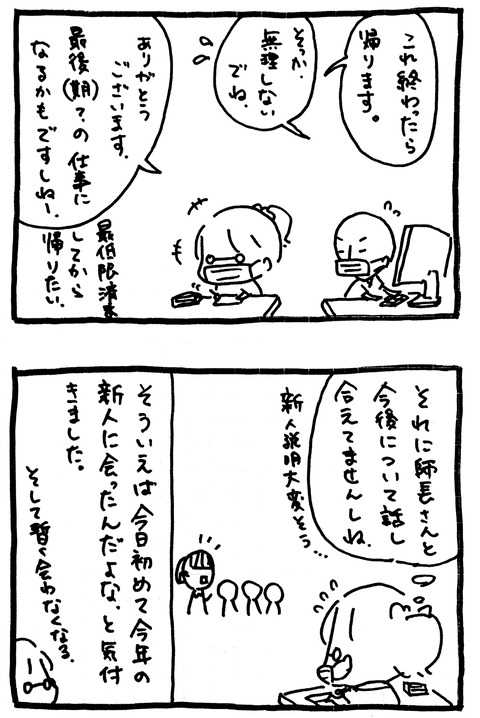 これ終わったら
帰ります。
そっか、
無理しない
でね、
ありがとう
ございます、
最後(期)?の仕事に
なるかもですしねー、
最低限済ま
してから
帰りたい、
それに師長さんと
今後について話し
合えてませんしね、
新人説明大変そう…
そういえば今日初めて今年の
新人に会ったんだよな、と気付
きました。
そして暫く会わなくなる、